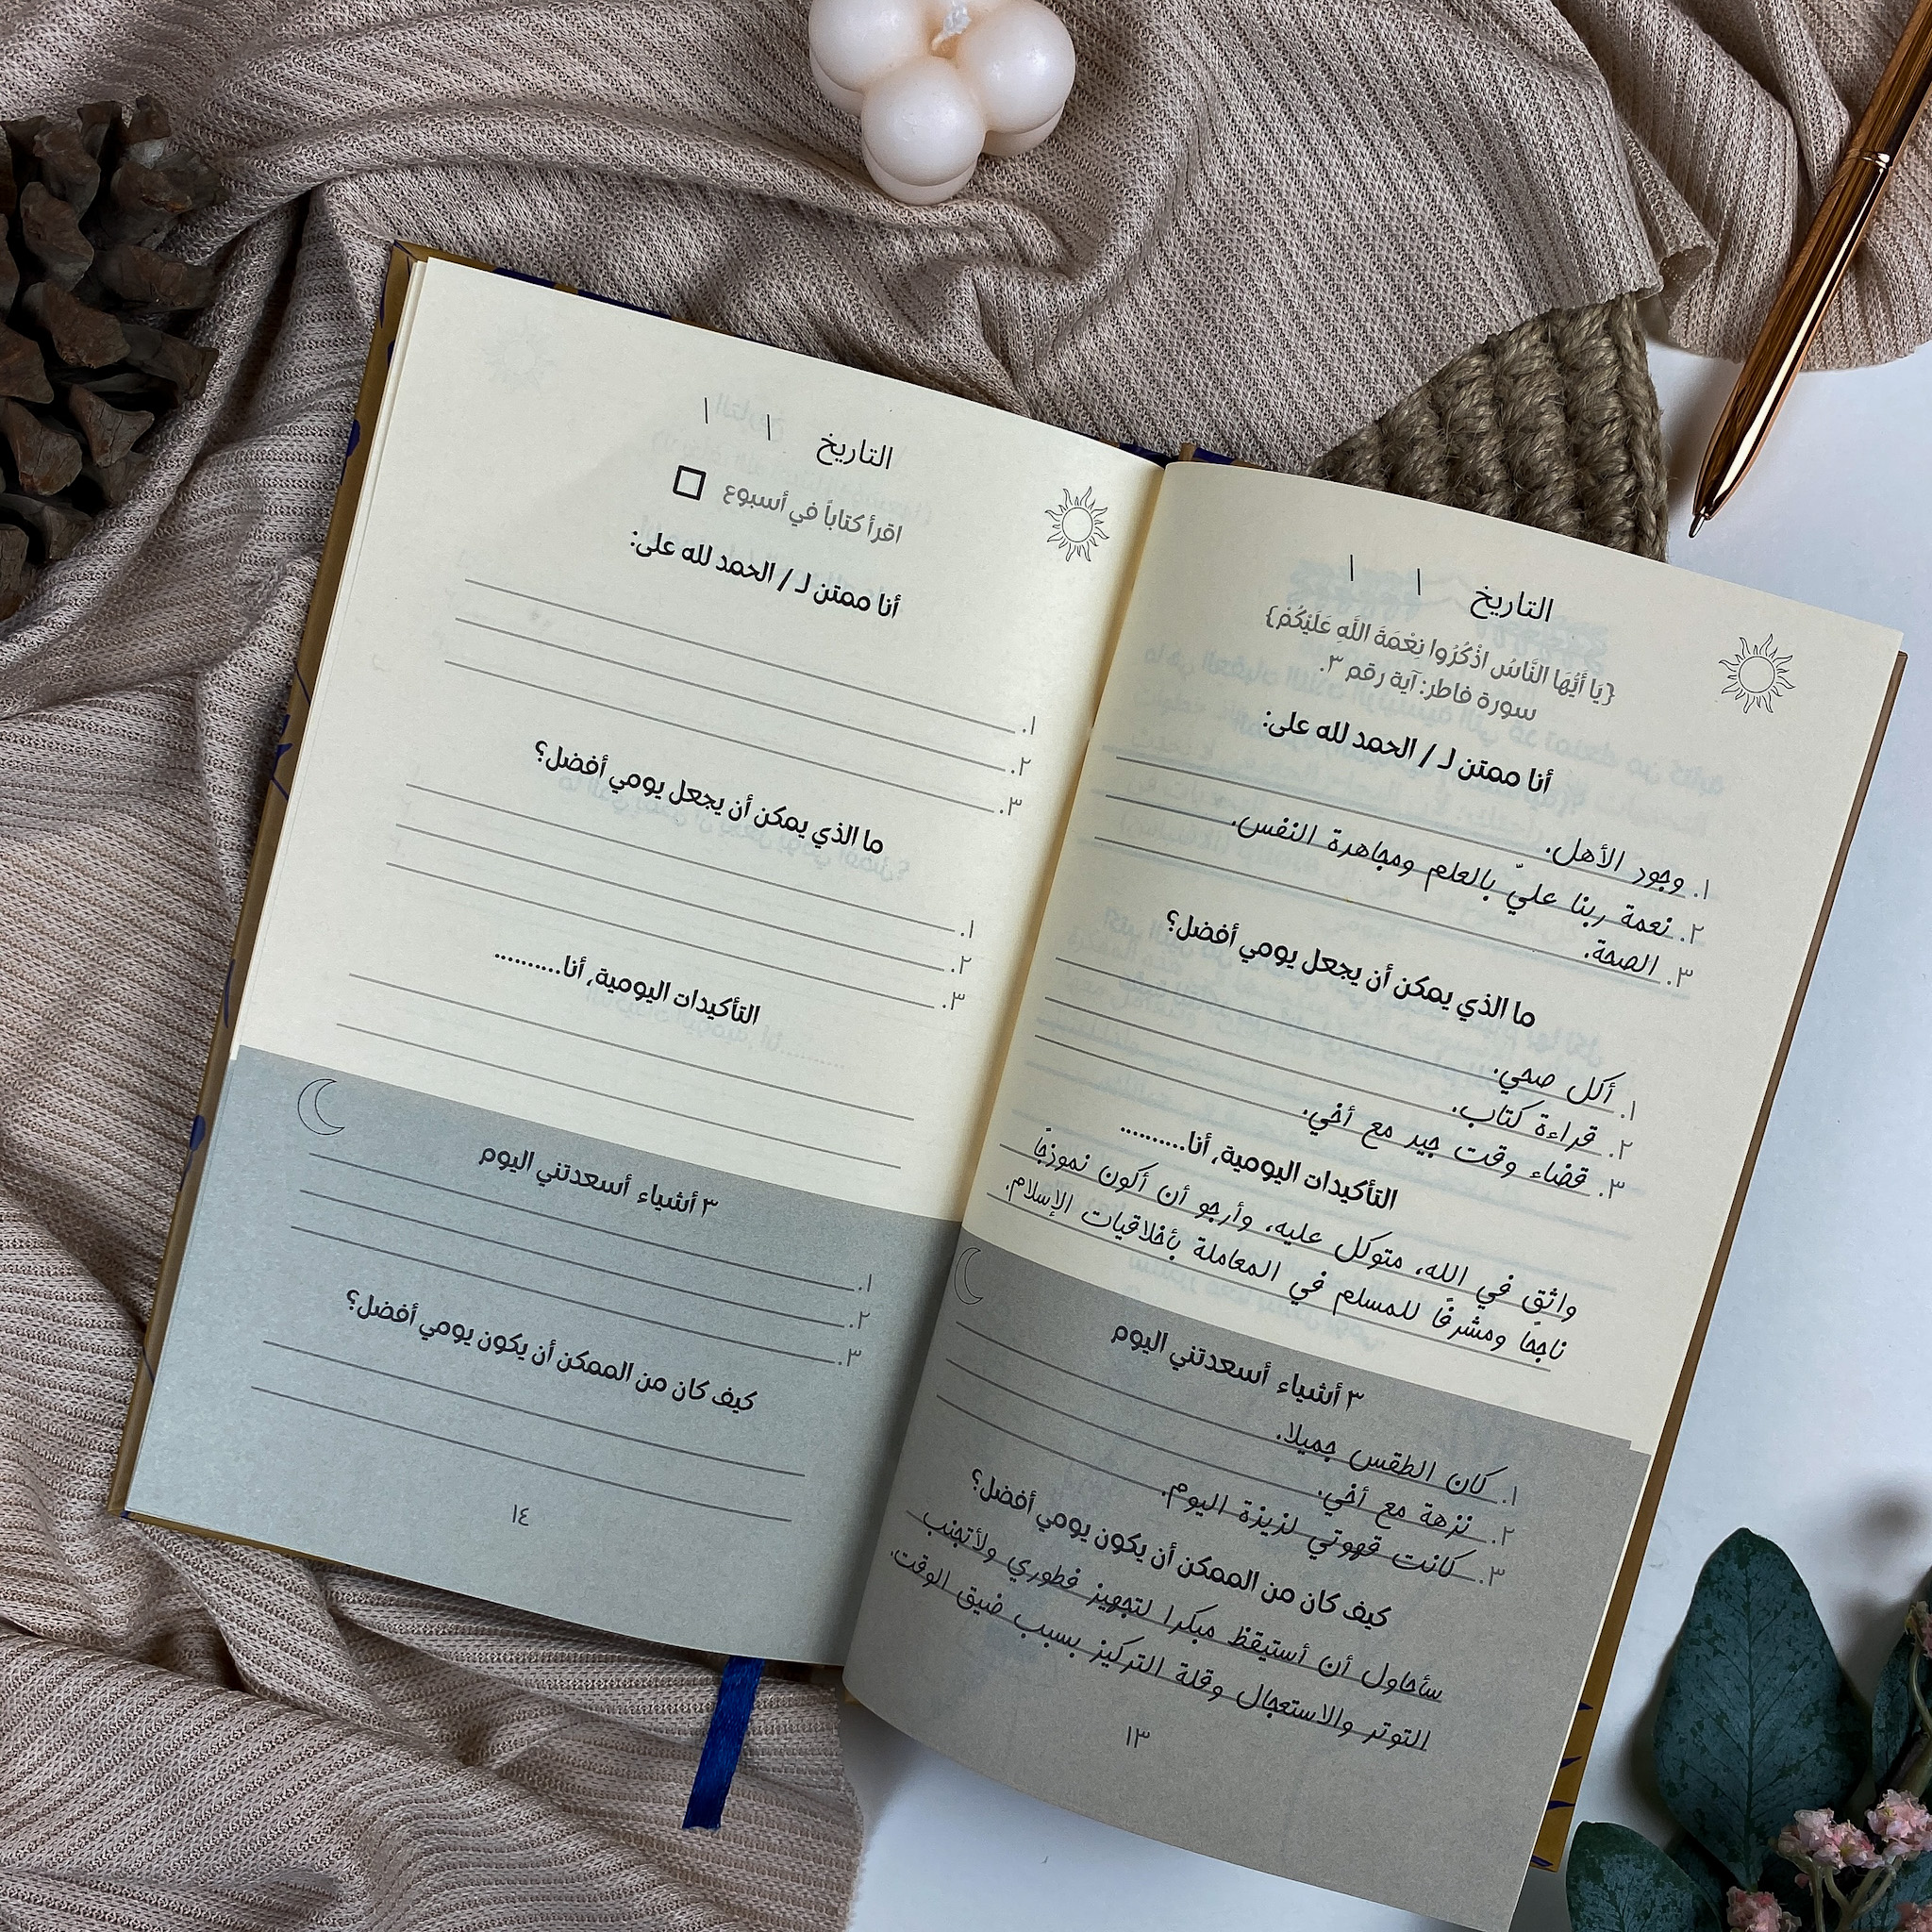 التاريخ / /
{يَا أَيُّهَا النَّاسُ اذْكُرُوا نِعْمَةَ اللَّهِ عَلَيْكُمْ}
سورة فاطر: آية رقم ٣.
أنا ممتن لـ / الحمد لله على:
١. وجود الأهل.
٢. نعمة ربنا عليّ بالعلم ومجاهدة النفس.
٣. الصحة.
ما الذي يمكن أن يجعل يومي أفضل؟
١. أكل صحي.
٢. قراءة كتاب.
٣. قضاء وقت جيد مع أخي.
التأكيدات اليومية, أنا..........
واثق في الله، متوكل عليه، وأرجو أن أكون نموزجًا
ناجحًا ومشرفًا للمسلم في المعاملة بأخلاقيات الإسلام.
٣ أشياء أسعدتني اليوم
١. كان الطقس جميلا.
٢. نزهة مع أخي.
٣. كانت قهوتي لزيزة اليوم.
كيف كان من الممكن أن يكون يومي أفضل؟
سأحاول أن أستيقظ مبكرا لتجهيز فطوري ولأتجنب
التوتر والاستعجال وقلة التركيز بسبب ضيق الوقت.
١٣
التاريخ / /
اقرأ كتاباً في أسبوع
أنا ممتن لـ / الحمد لله على:
١.
٢.
٣.
ما الذي يمكن أن يجعل يومي أفضل؟
١.
٢.
٣.
التأكيدات اليومية, أنا..........
٣ أشياء أسعدتني اليوم
١.
٢.
٣.
كيف كان من الممكن أن يكون يومي أفضل؟
١٤